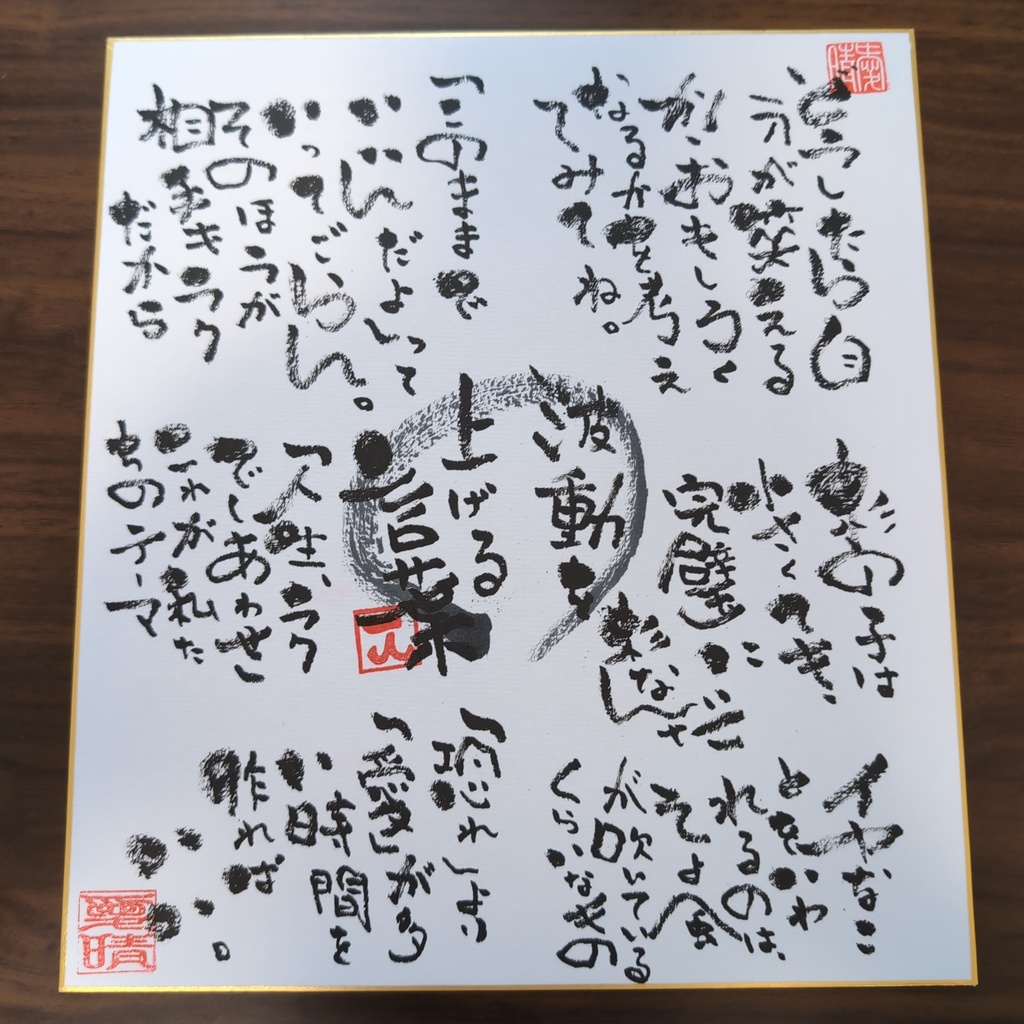 どうしたら自
分が笑える
か、おもしろく
なるかを考え
てみてね。
「このままで
いいんだよ」って
いってごらん。
そのほうが
相手もラク
だから
波動を
上げる
言葉
の子は
小さくても
完璧に
人生、ラク
でしあわせ
これが私た
ちのテーマ
イヤなこ
とをいわ
れるのは、
そよ風
が吹いている
くらいなもの
「恐れ」より
「愛」が多
い時間を
作れば
いい。